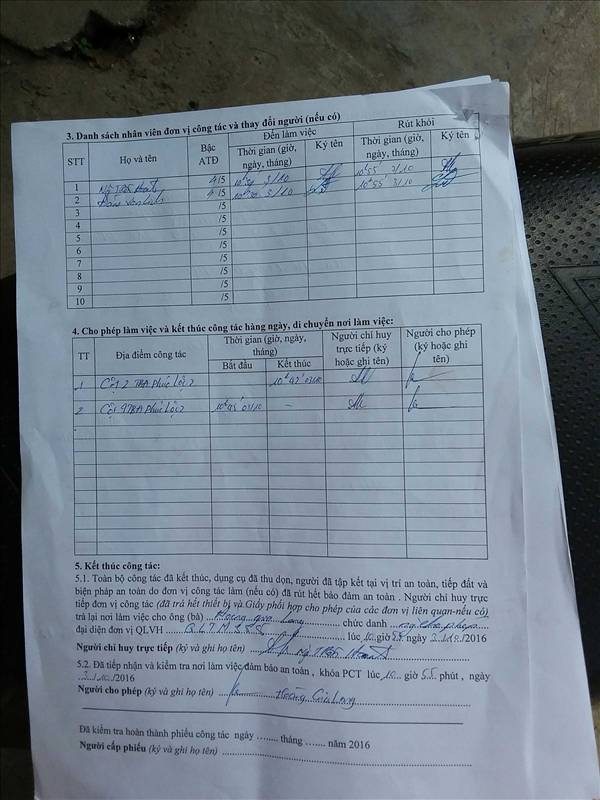 3. Danh sách nhân viên đơn vị công tác và thay đổi người (nếu có)
STT Họ và tên Bậc ATĐ Đến làm việc Rút khỏi
Thời gian (giờ, ngày, tháng) Ký tên Thời gian (giờ, ngày, tháng) Ký tên
1 4/5 3/10 10h55' 3/10
2 4/5 3/10 10h55' 3/10
3 /5
4 /5
5 /5
6 /5
7 /5
8 /5
9 /5
10 /5
4. Cho phép làm việc và kết thúc công tác hàng ngày, di chuyển nơi làm việc:
TT Địa điểm công tác Thời gian (giờ, ngày, tháng) Người chỉ huy trực tiếp (ký hoặc ghi tên) Người cho phép (ký hoặc ghi tên)
Bắt đầu Kết thúc
1 Cột 2 TBA Phúc Lộc 2
2 Cột 9 TBA Phúc Lộc 2 -
5. Kết thúc công tác:
5.1. Toàn bộ công tác đã kết thúc, dụng cụ đã thu dọn, người đã tập kết tại vị trí an toàn, tiếp đất và
biện pháp an toàn do đơn vị công tác làm (nếu có) đã rút hết bảo đảm an toàn . Người chỉ huy trực
tiếp đơn vị công tác (đã trả hết thiết bị và Giấy phối hợp cho phép của các đơn vị liên quan-nếu có)
trả lại nơi làm việc cho ông (bà) Hoàng Gia Long chức danh người cho phép
đại diện đơn vị QLVH lúc 10 giờ 55 ngày 3/10/2016
Người chỉ huy trực tiếp (ký và ghi họ tên)
5.2. Đã tiếp nhận và kiểm tra nơi làm việc đảm bảo an toàn , khóa PCT lúc 10 giờ 55 phút , ngày
3/10/2016
Người cho phép (ký và ghi họ tên) Hoàng Gia Long
Đã kiểm tra hoàn thành phiếu công tác ngày ........ tháng ....... năm 2016
Người cấp phiếu (ký và ghi họ tên)